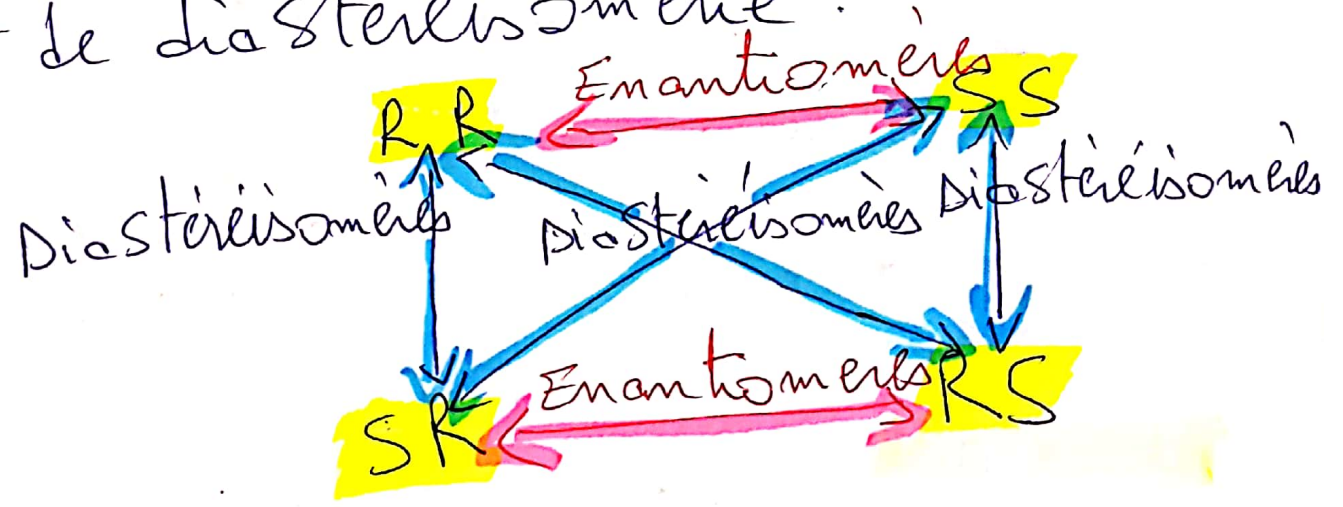 - de diastéréisomérie :
Enantiomères
R R S S
Diastéréisomères Diastéréisomères Diastéréisomères
Enantiomères
S R R S